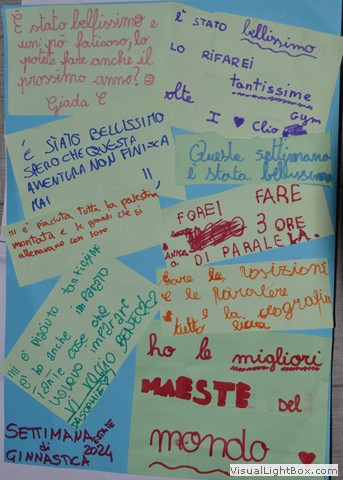 È stato bellissimo e
un pò faticoso, lo
potete fare anche il
prossimo anno?
Giada C
È STATO bellissimo
LO RIFAREI
tantissime
volte
I ♥ Clio Gym
È STATO BELLISSIMO
SPERO CHE QUESTA
AVVENTURA NON FINISCA
MAI !!
Questa settimana
è stata bellissima
MI è piaciuta tutta la palestra
montata e le grandi che si
allenavano con loro
FOREI FARE
ANCHE 3 ORE
DI PARALELA.
fare le posizioni
e le paralele
e la coreografia
tutto
MI È PIACIUTO tantissimo
e ho anche imparato
tante cose che
volevo imparare
VI VOGLIO BENE
ho le migliori
MAESTE del
mondo ♥
SETTIMANA
ESTATE
di 2024
GINNASTICA
VisualLightBox.com